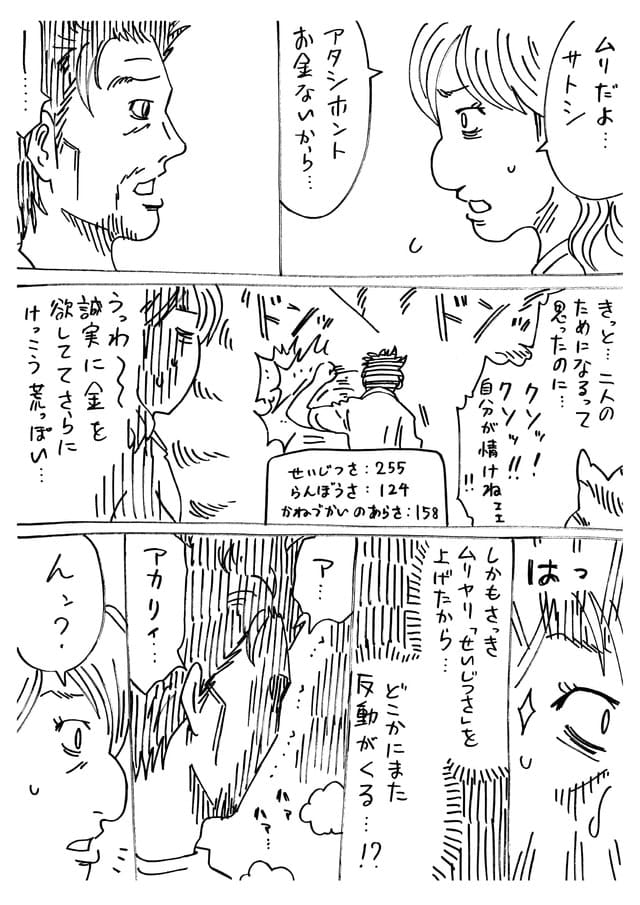 ムリだよ…
サトシ
アタシホント
お金ないから…
……
きっと…二人の
ためになるって
思ったのに…
クソッ!
クソッ!!
自分が情けねェェ
!!
せいじつさ:255
らんぼうさ:124
かねづかいのあらさ:158
うっわ〜〜
誠実に金を
欲しててさらに
けっこう荒っぽい…
はっ
しかもさっき
ムリヤリ「せいじつさ」を
上げたから…
どこかにまた
反動がくる…!?
ア…
アカリィ…
ハァ
ハァ…
んン?